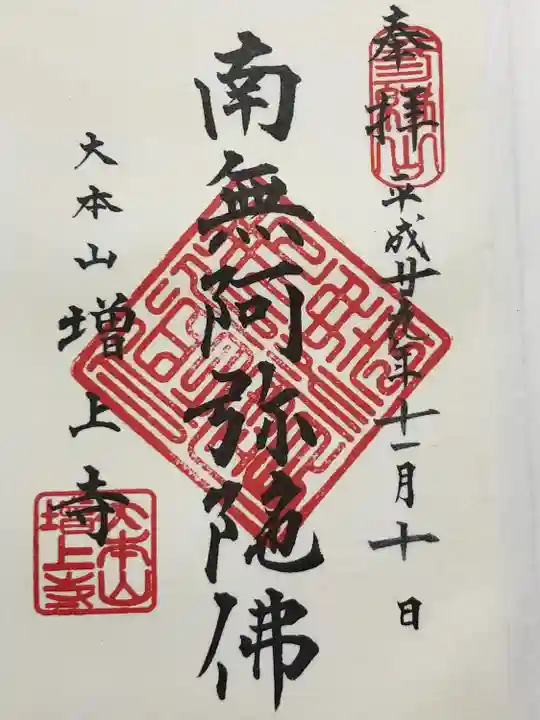 奉拝
平成廿五年十一月十日
南無阿弥陀佛
大本山
増上寺
大本山
増上寺